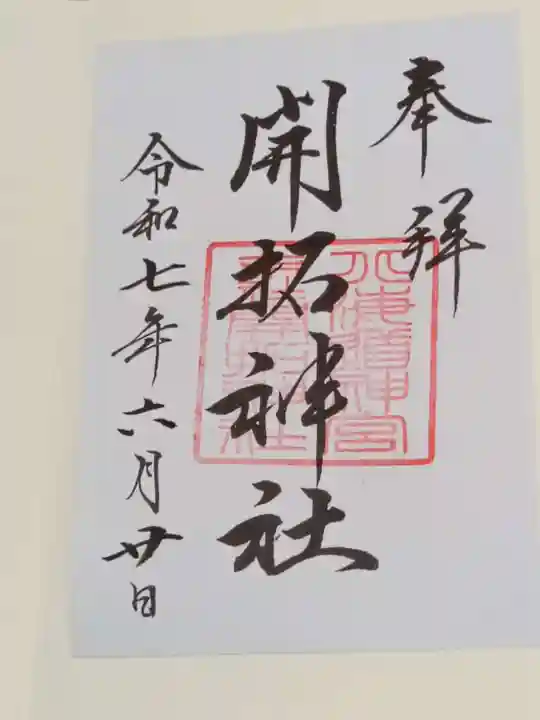 奉拝
開拓神社
令和七年六月廿日
北海道神宮